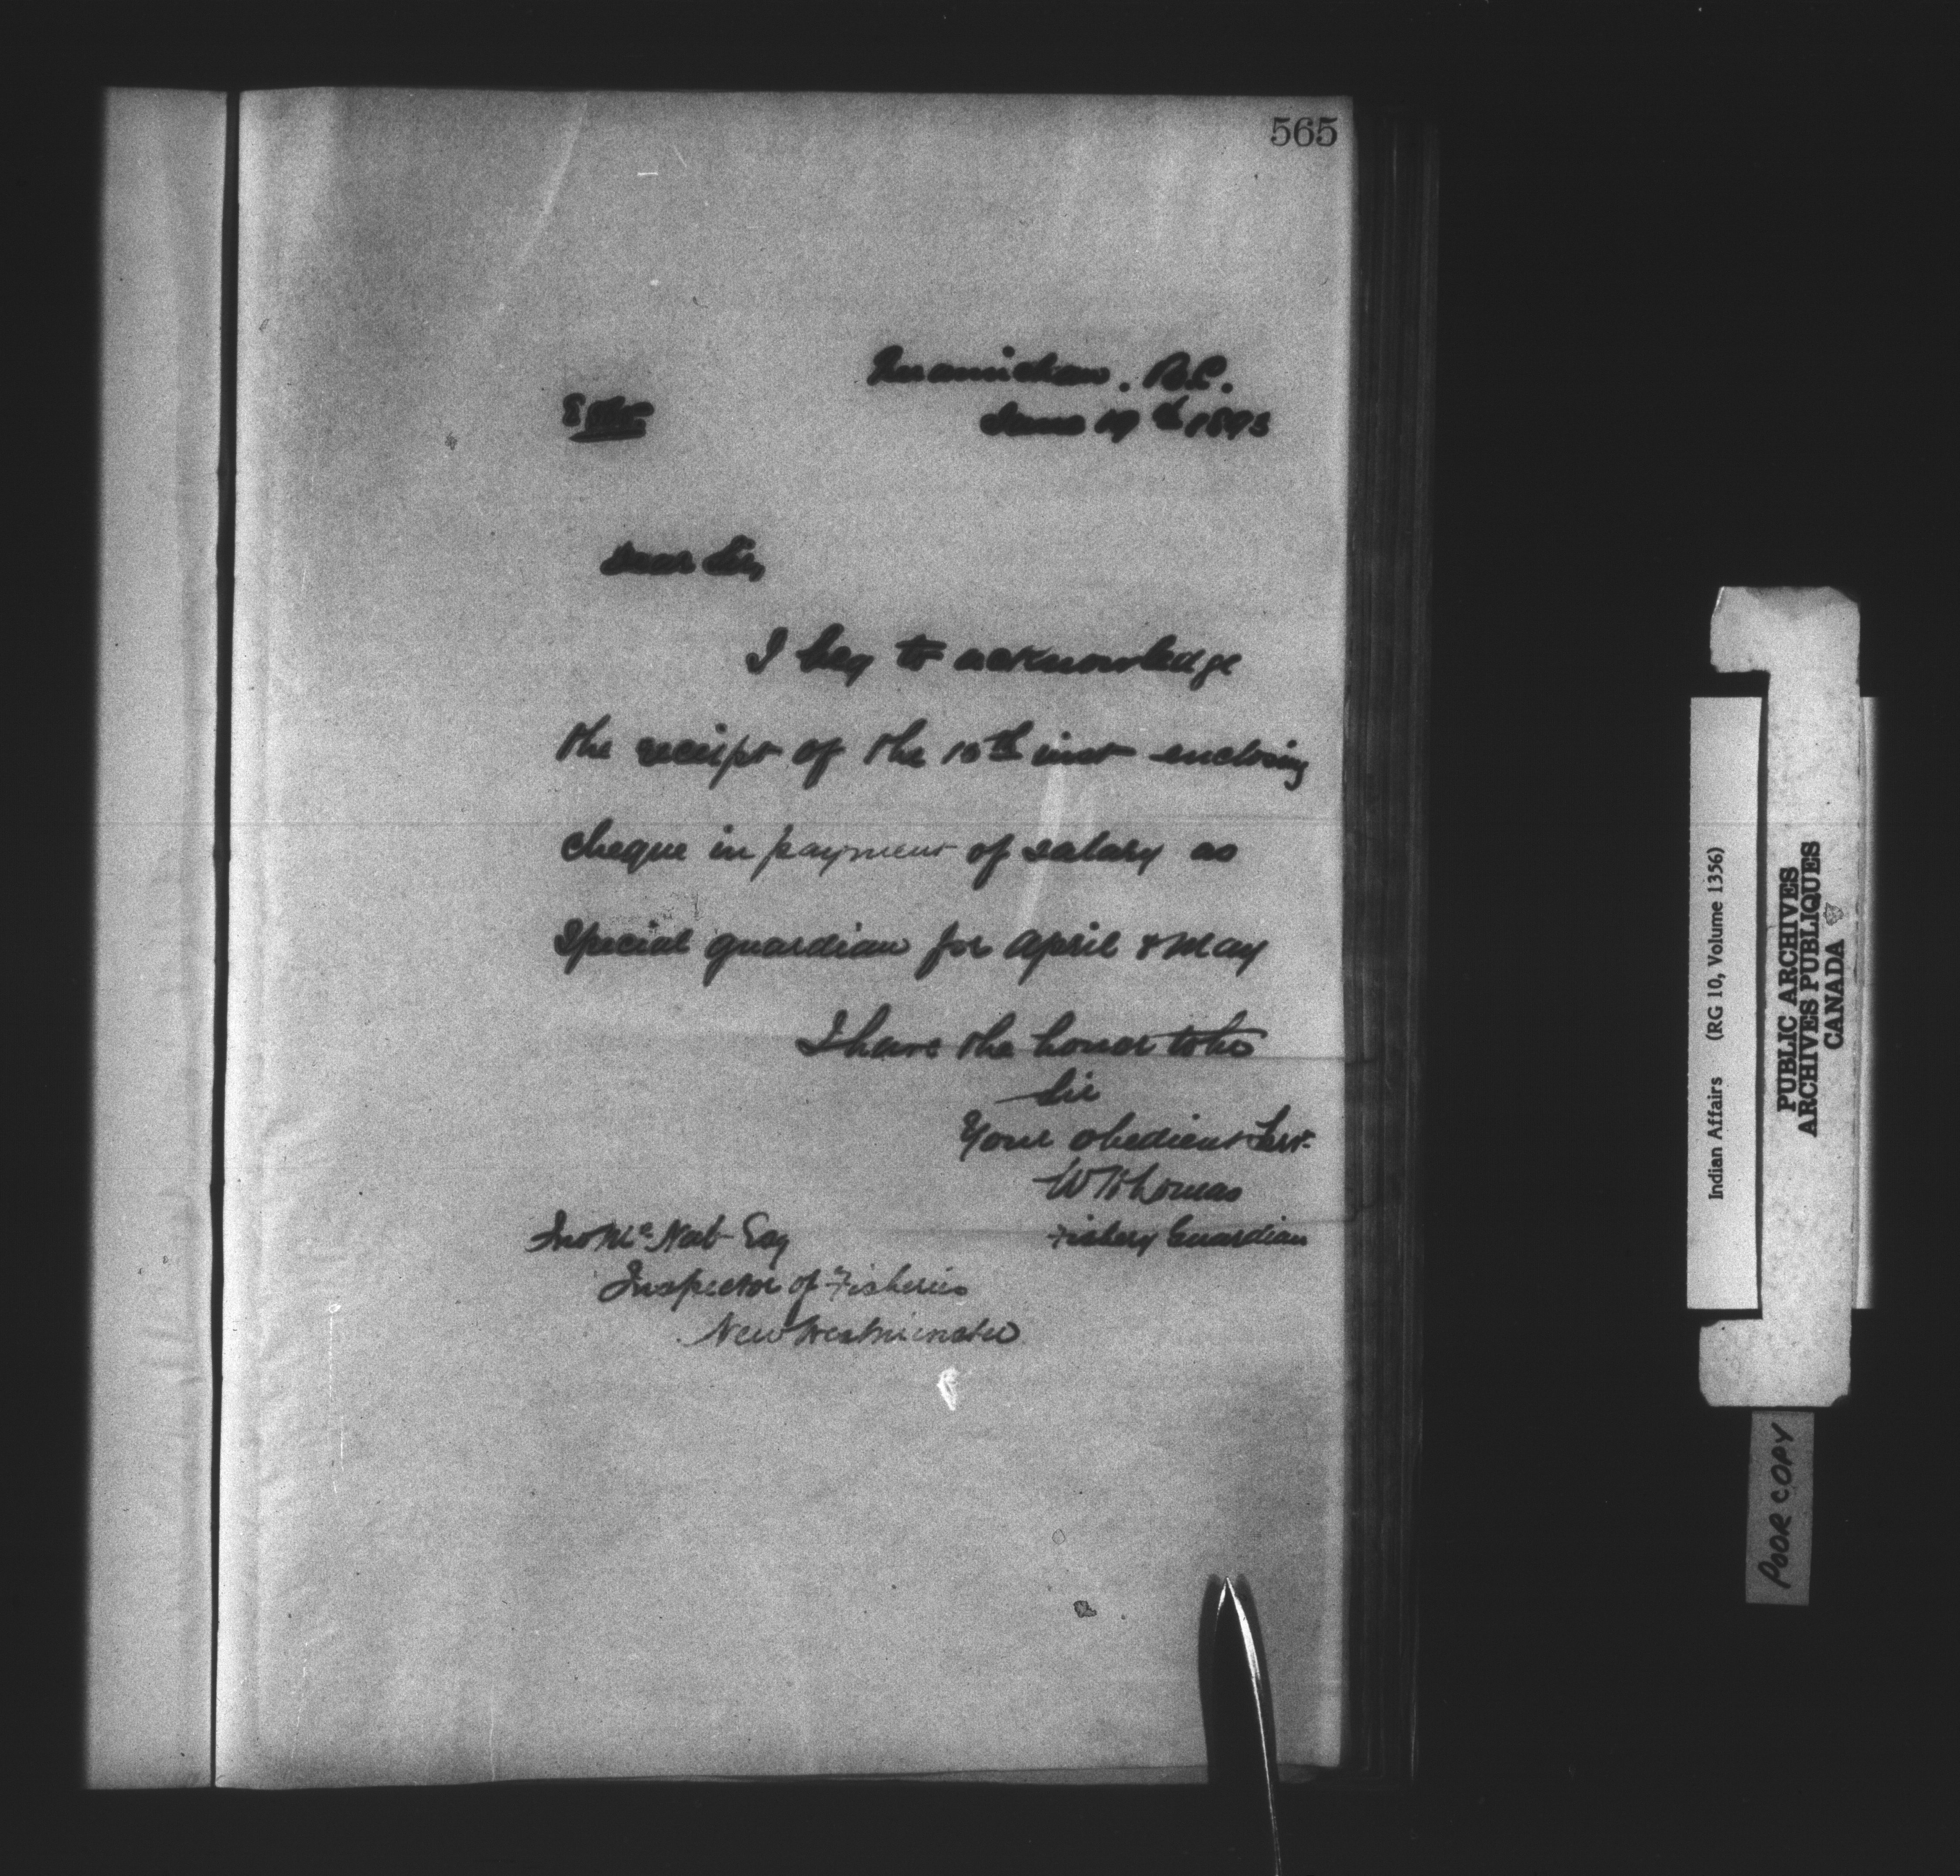 565
Quamichan. B.C.
June 19th 1893
Dear Sir,
I beg to acknowledge
the receipt of the 15th inst enclosing
cheque in payment of salary as
Special guardian for April & May
I have the honor to be
Sir
Your obedient Servt.
W H Lomas
Fishery Guardian
Jno Mc Nab Esq
Inspector of Fisheries
New Westminster
Indian Affairs (RG 10, Volume 1356)
PUBLIC ARCHIVES
ARCHIVES PUBLIQUES
CANADA
POOR COPY